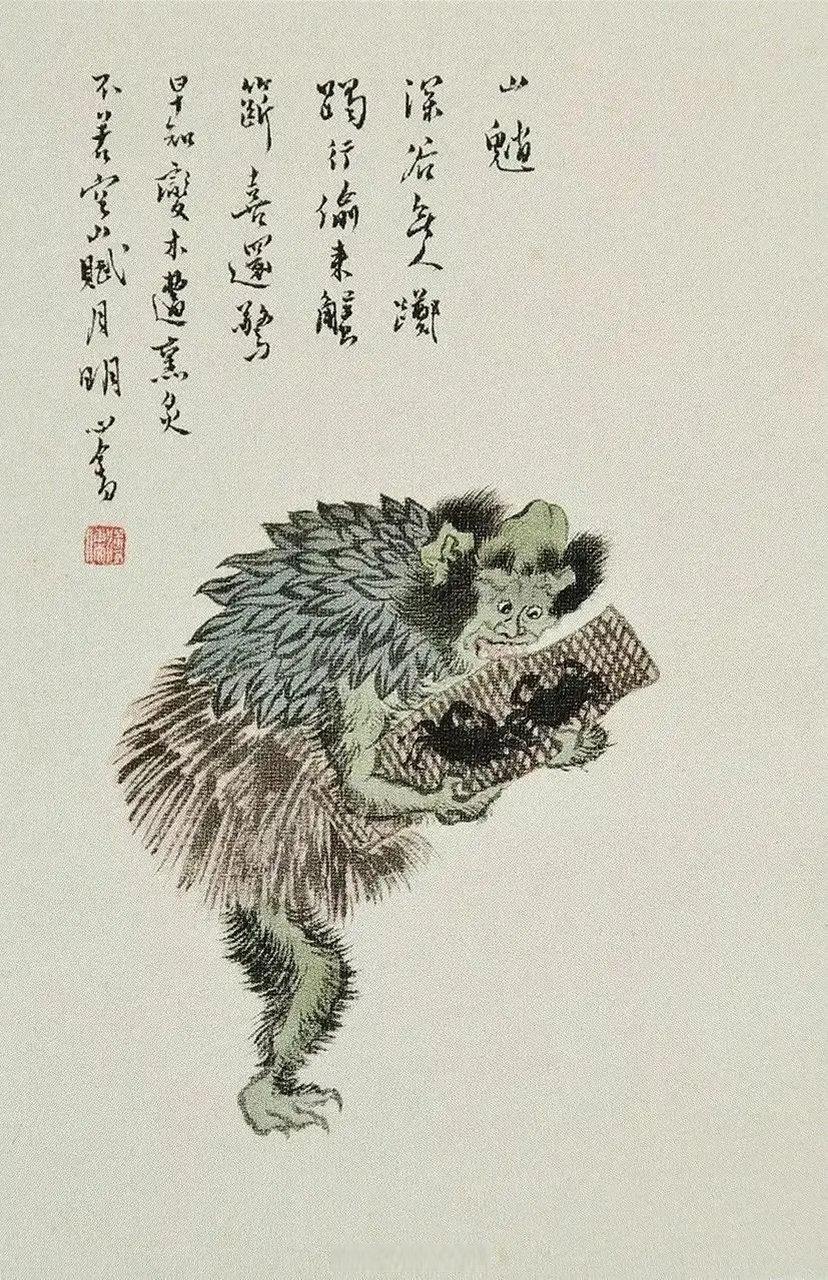 山魈
深谷無人躑
躅行偷来蟹
籪喜還驚
早知變木遭熏炙
不若空山賦月明 心畬